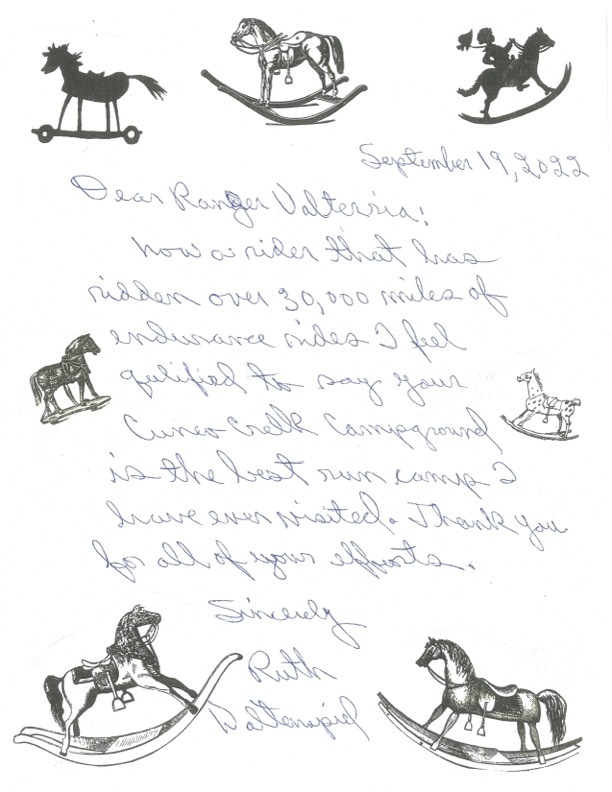 September 19, 2022
Dear Ranger Valterria:
now a rider that has
ridden over 30,000 miles of
endurance rides I feel
qulified to say your
Cuneo Creek Campground
is the best run camp I
have ever visited. Thank you
for all of your efforts.
Sincerely
Ruth
Waltenspiel